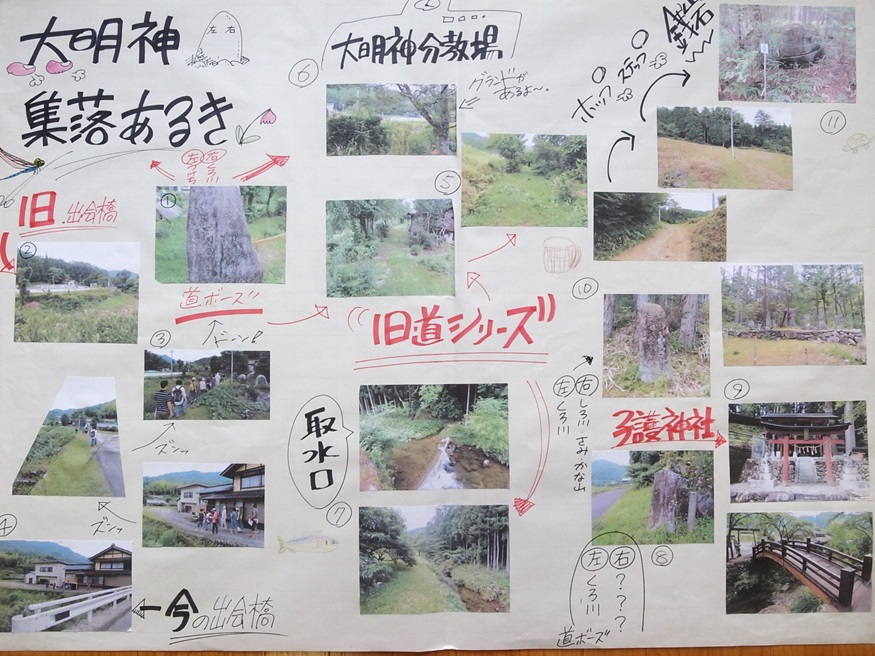 大明神
左右
集落あるき
⑥
大明神分教場
グランドが
あるよ〜。
ホップ
ステップ
⑪
旧出会橋
②
①
道ボーズ
③
⑤
旧道シリーズ
取水口
⑦
ズンッ
ズンッ
④
今の出会橋
⑩
右 しろ川 さみ かな山
左 くろ川
子護神社
⑨
⑧
右 ? ? ?
左 くろ川
道ボーズ